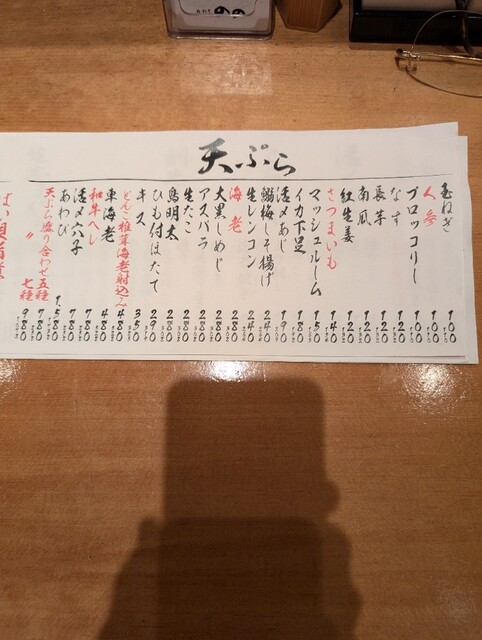 天ぷら
玉ねぎ 100
人参 100
ブロッコリー 100
なす 120
長芋 120
南瓜 120
紅生姜 120
さつまいも 140
マッシュルーム 150
イカ下足 180
活〆あじ 190
鰯梅しそ揚げ 240
生レンコン 240
海老 280
大黒しめじ 280
アスパラ 280
生たこ 280
鳥明太 280
ひも付ほたて 290
キス 350
どんこ椎茸海老射込み 480
車海老 480
和牛ヘレ 780
活〆穴子 780
あわび 1.580
天ぷら盛り合わせ五種 780
〃 七種 980